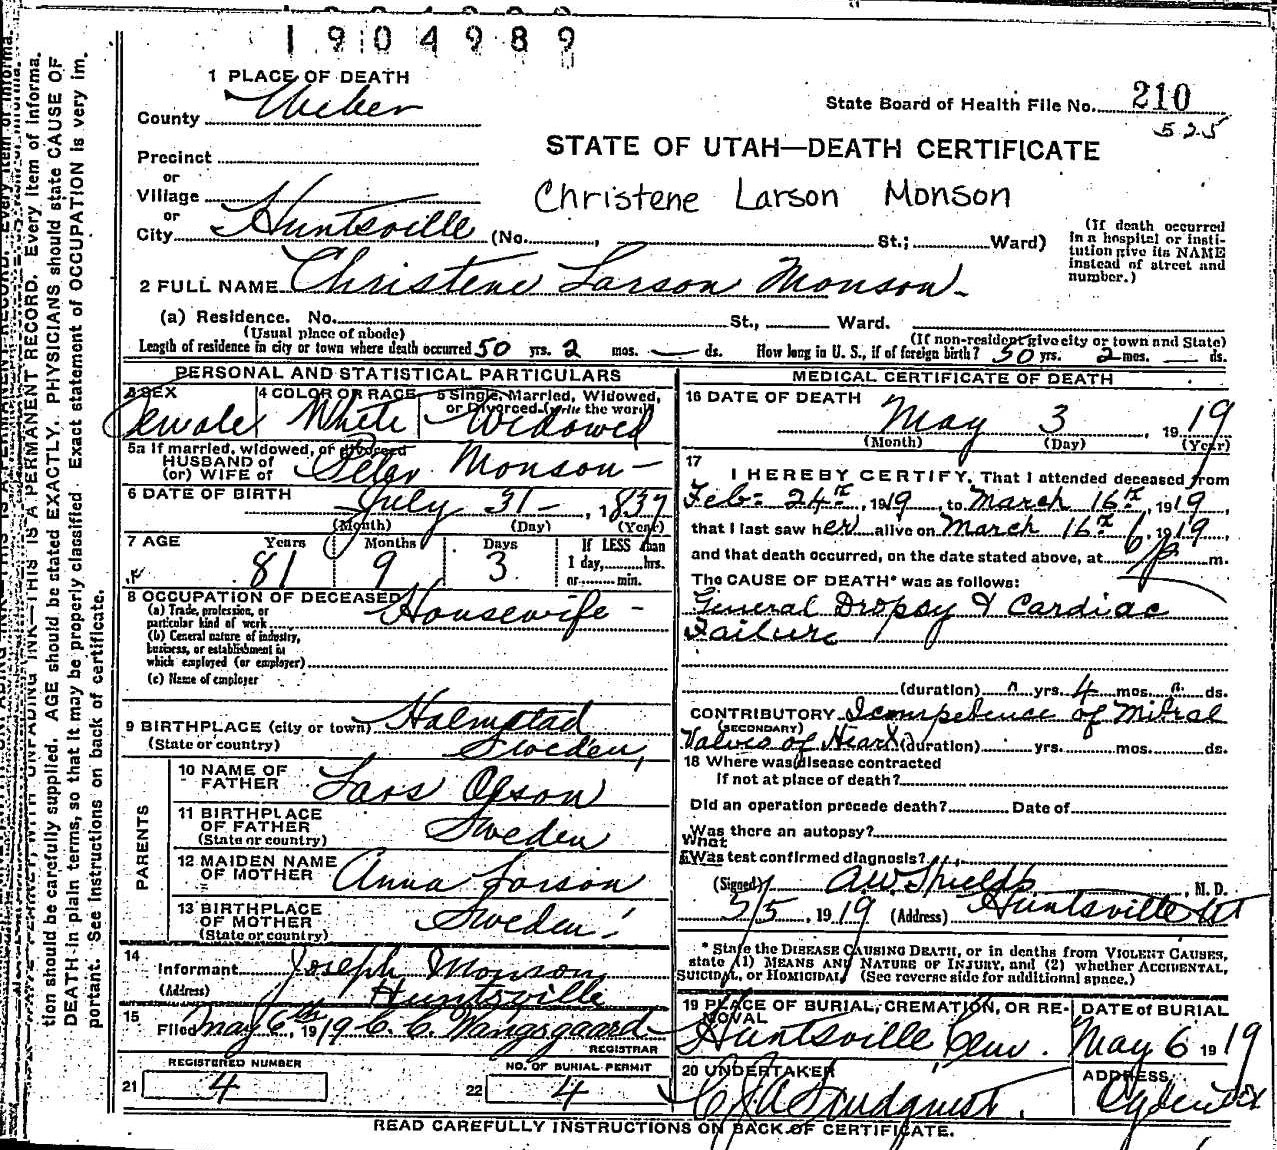 1904989
1 PLACE OF DEATH
County Weber
State Board of Health File No. 210
525
Precinct
or
Village
or
City Huntsville (No. , St.; Ward)
STATE OF UTAH—DEATH CERTIFICATE
Christene Larson Monson
(If death occurred
in a hospital or insti-
tution give its NAME
instead of street and
number.)
2 FULL NAME Christene Larson Monson
(a) Residence. No. St., Ward.
(Usual place of abode) (If non-resident give city or town and State)
Length of residence in city or town where death occurred 50 yrs. 2 mos. — ds. How long in U. S., if of foreign birth? 50 yrs. 2 mos. — ds.
PERSONAL AND STATISTICAL PARTICULARS
3 SEX 4 COLOR OR RACE 5 Single, Married, Widowed,
or Divorced (write the word)
Female White Widowed
5a If married, widowed, or divorced
HUSBAND of
(or) WIFE of Peter Monson
6 DATE OF BIRTH July 31 , 1837
(Month) (Day) (Year)
7 AGE Years Months Days If LESS than
1 day, hrs.
or min.
81 9 3
8 OCCUPATION OF DECEASED
(a) Trade, profession, or
particular kind of work Housewife
(b) General nature of industry,
business, or establishment in
which employed (or employer)
(c) Name of employer
9 BIRTHPLACE (city or town) Halmstad
(State or country) Sweden
PARENTS
10 NAME OF
FATHER Lars Olson
11 BIRTHPLACE
OF FATHER
(State or country) Sweden
12 MAIDEN NAME
OF MOTHER Anna Larson
13 BIRTHPLACE
OF MOTHER
(State or country) Sweden
14
Informant Joseph Monson
(Address) Huntsville
15
Filed May 6th, 1919 C. C. Wangsgaard
REGISTRAR
REGISTERED NUMBER
21 4
NO. OF BURIAL PERMIT
22 4
MEDICAL CERTIFICATE OF DEATH
16 DATE OF DEATH
May 3 , 1919
(Month) (Day) (Year)
17
I HEREBY CERTIFY, That I attended deceased from
Feb. 24th, 1919, to March 16th, 1919,
that I last saw her alive on March 16th, 1919,
and that death occurred, on the date stated above, at 6 p m.
The CAUSE OF DEATH* was as follows:
General Dropsy & Cardiac
Failure
(duration) yrs. 4 mos. ds.
CONTRIBUTORY Icompetence of Mitral
(SECONDARY)
Valves of Heart (duration) yrs. mos. ds.
18 Where was disease contracted
If not at place of death?
Did an operation precede death? Date of
Was there an autopsy?
What
Was test confirmed diagnosis?
(Signed) A.W. Shields , M. D.
5/5, 1919 (Address) Huntsville Ut
* State the DISEASE CAUSING DEATH, or in deaths from VIOLENT CAUSES,
state (1) MEANS AND NATURE OF INJURY, and (2) whether ACCIDENTAL,
SUICIDAL, or HOMICIDAL. (See reverse side for additional space.)
19 PLACE OF BURIAL, CREMATION, OR RE-
MOVAL
Huntsville Cem.
DATE of BURIAL
May 6 1919
20 UNDERTAKER
Lindquist
ADDRESS
Ogden
READ CAREFULLY INSTRUCTIONS ON BACK OF CERTIFICATE.
THIS IS A PERMANENT RECORD. Every item of informa-
tion should be carefully supplied. AGE should be stated EXACTLY. PHYSICIANS should state CAUSE OF
DEATH in plain terms, so that it may be properly classified. Exact statement of OCCUPATION is very im-
portant. See instructions on back of certificate.